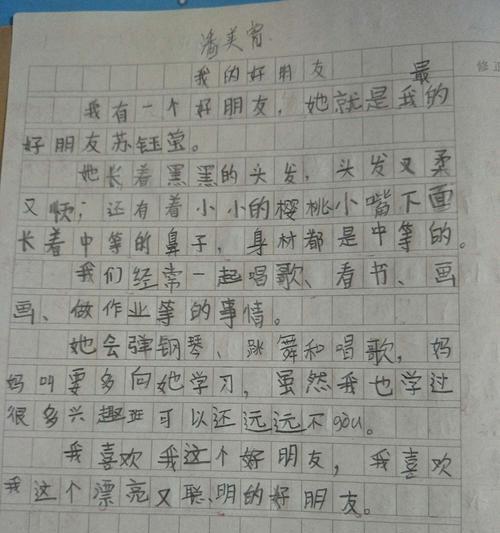 潘美宵
我的好朋友 最
我有一个好朋友，她就是我的
好朋友苏钰莹。
她长着黑黑的头发，头发又柔
又顺；还有着小小的樱桃小嘴下面
长着中等的鼻子，身材都是中等的。
我们经常一起唱歌、看书、画
画、做作业等的事情。
她会弹钢琴、跳舞和唱歌，妈
妈叫要多向她学习，虽然我也学过
很多兴趣班可以还远远不gòu。
我喜欢我这个好朋友，我喜欢
我这个漂亮又聪明的好朋友。